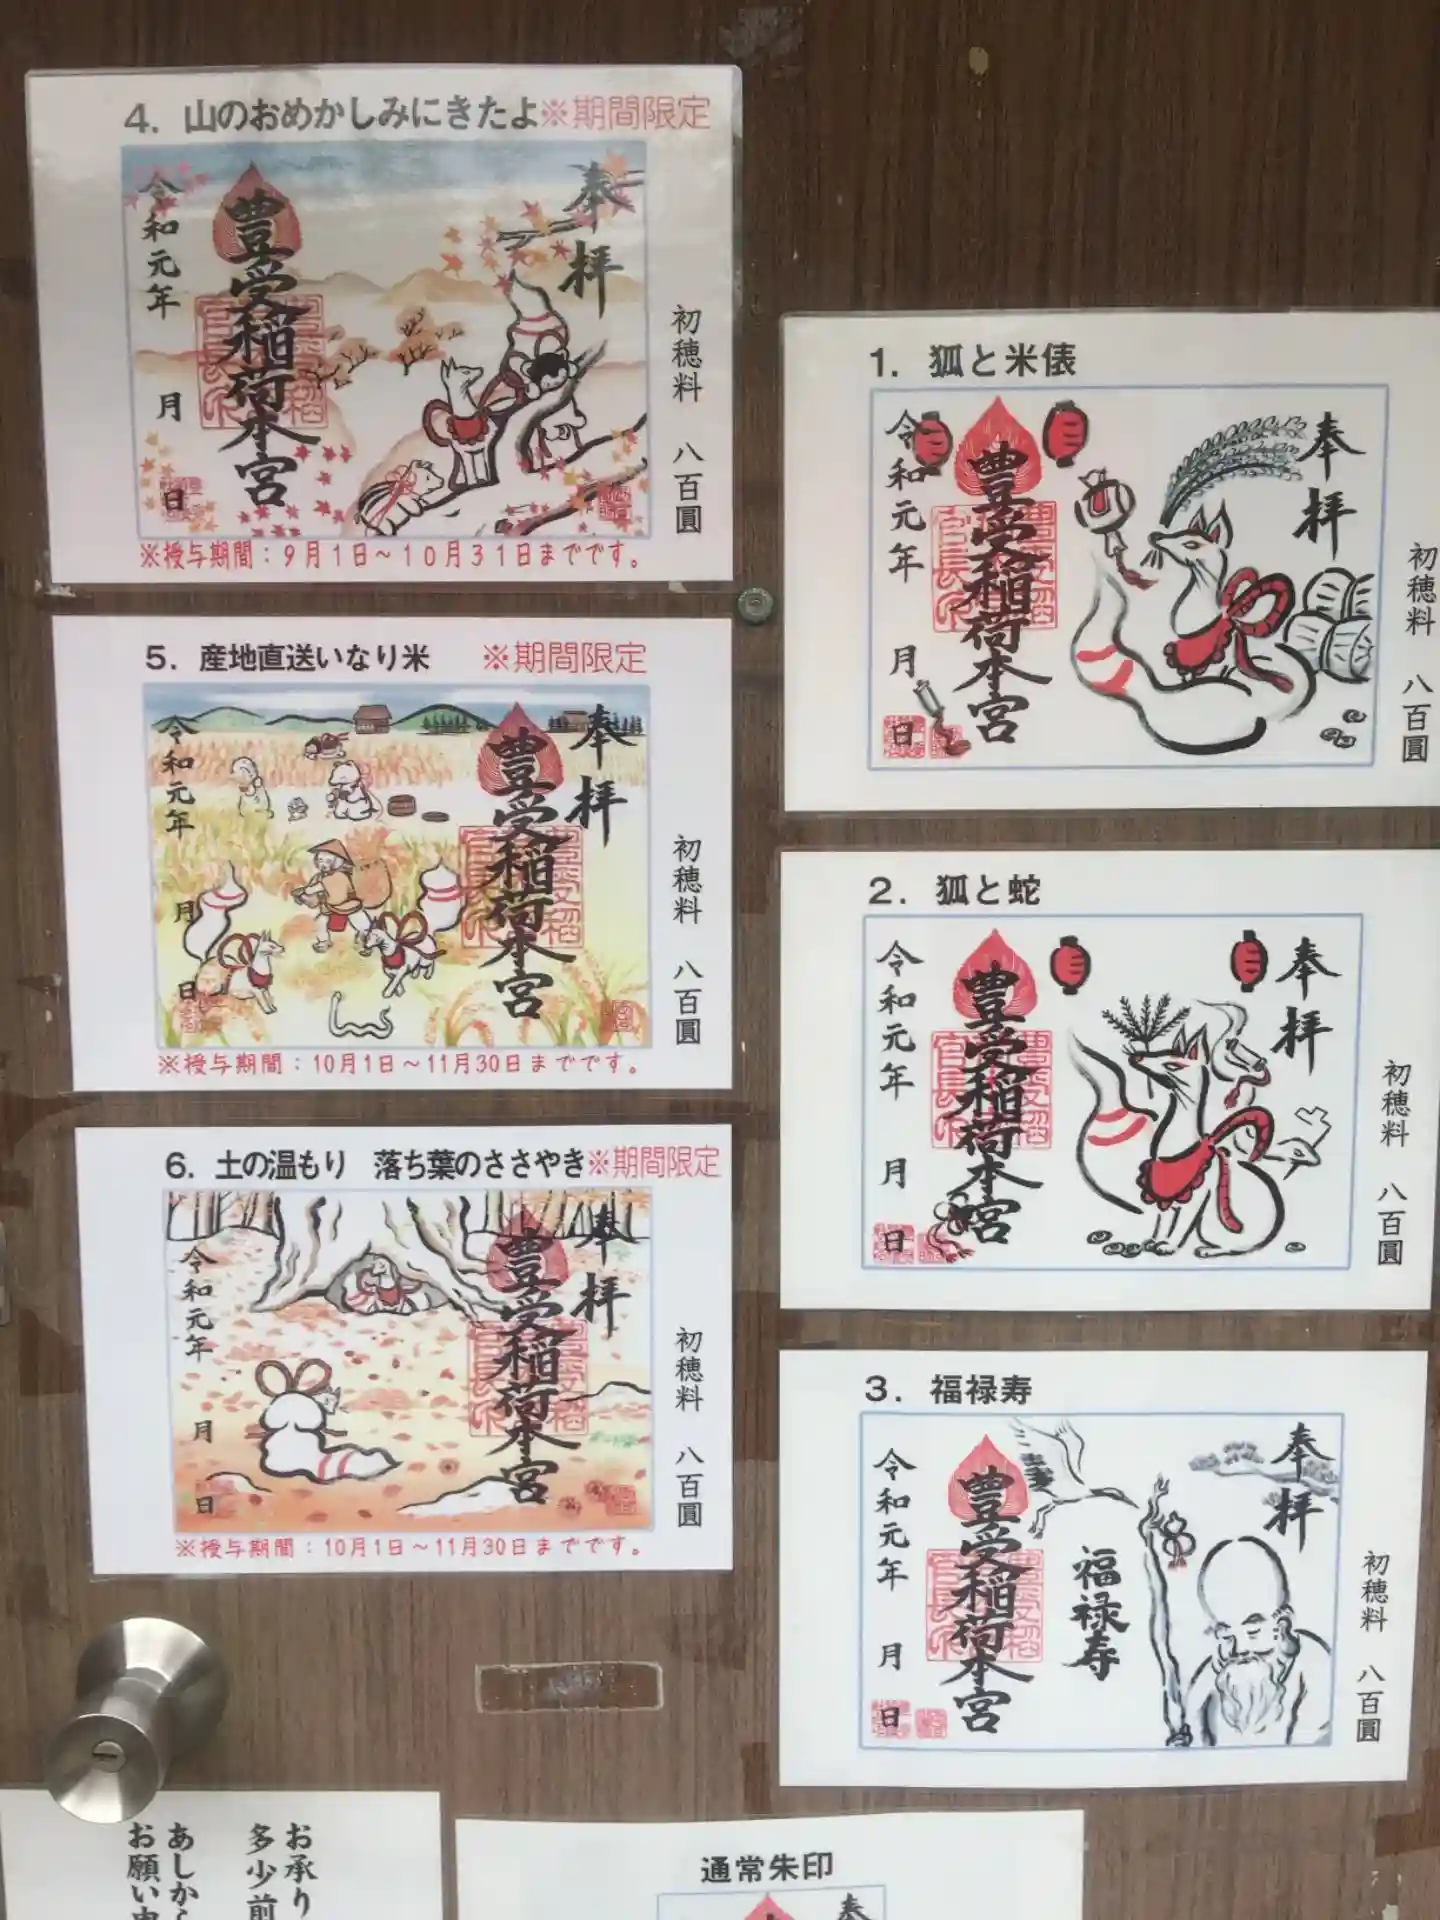 4．山のおめかしみにきたよ※期間限定
奉拝
豊受稲荷本宮
令和元年
月
日
初穂料 八百圓
※授与期間：9月1日～10月31日までです。
5．産地直送いなり米 ※期間限定
奉拝
豊受稲荷本宮
令和元年
月
日
初穂料 八百圓
※授与期間：10月1日～11月30日までです。
6．土の温もり 落ち葉のささやき※期間限定
奉拝
豊受稲荷本宮
令和元年
月
日
初穂料 八百圓
※授与期間：10月1日～11月30日までです。
1．狐と米俵
奉拝
豊受稲荷本宮
令和元年
月
日
初穂料 八百圓
2．狐と蛇
奉拝
豊受稲荷本宮
令和元年
月
日
初穂料 八百圓
3．福禄寿
奉拝
福禄寿
豊受稲荷本宮
令和元年
月
日
初穂料 八百圓
お承り
多少前
あしから
お願い申
通常朱印
奉